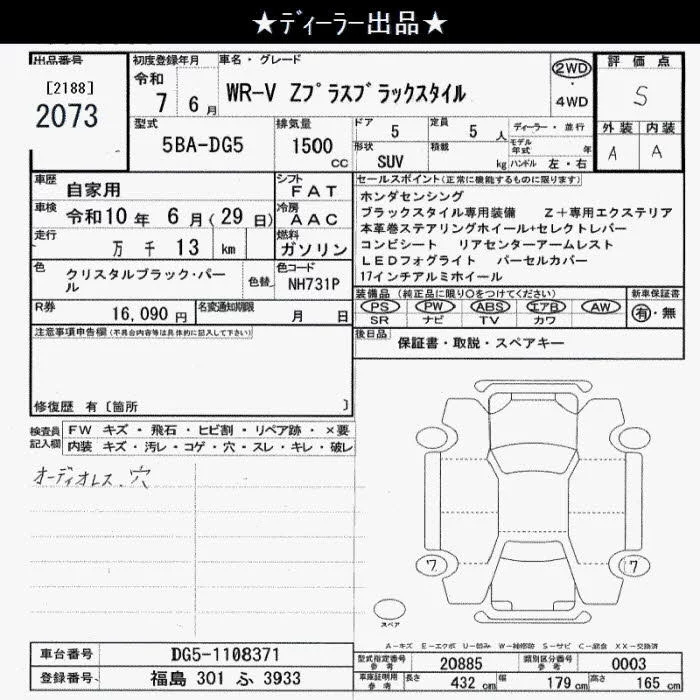 ★ディーラー出品★
出品番号
[2188]
2073
初度登録年月
令和
7 6 月
車名・グレード
WR-V Zプラスブラックスタイル
2WD
・
4WD
評価点
S
外装 内装
A A
型式
5BA-DG5
排気量
1500 CC
ドア 5
定員 5 人
形状 SUV
積載 kg
ディーラー・並行
モデル年式 年
ハンドル 左・右
車歴 自家用
シフト FAT
車検 令和10年 6月(29日)
冷房 AAC
走行 万 千 13 km
燃料 ガソリン
色 クリスタルブラック・パール
色替
色コード NH731P
R券 16,090 円
名変通知期限 月 日
セールスポイント(正常に機能するものに限ります)
ホンダセンシング
ブラックスタイル専用装備 Z+専用エクステリア
本革巻ステアリングホイール+セレクトレバー
コンビシート リアセンターアームレスト
LEDフォグライト パーセルカバー
17インチアルミホイール
装備品(純正品に限り○をつけてください)
PS PW ABS エアB AW
SR ナビ TV カワ
新車保証書
有・無
後日品 保証書・取説・スペアキー
注意事項申告欄(不具合内容等は具体的に記入して下さい)
修復歴 有〔箇所 〕
検査員記入欄
FW キズ・飛石・ヒビ割・リペア跡・×要
内装 キズ・汚レ・コゲ・穴・スレ・キレ・破レ
オーディオレス、穴
ワ ワ
スペア
A-キズ E-エクボ U-凹み W-補修跡 S-サビ C-腐食 XX-交換済
車台番号 DG5-1108371
登録番号 福島 301 ふ 3933
型式指定番号参考 20885
類別区分番号参考 0003
車庫証明用参考 長さ 432 cm 幅 179 cm 高さ 165 cm